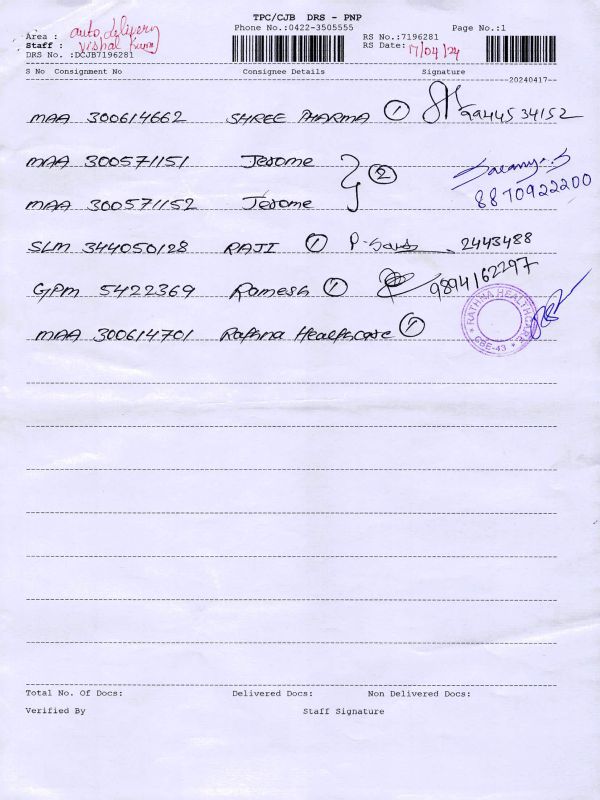 TPC/CJB DRS - PNP
Phone No.:0422-3505555 Page No.:1
Area : auto delivery
Staff : Vishal
RS No.:7196281
RS Date: 17/04/24
DRS No. :DCJB7196281
S No Consignment No Consignee Details Signature
20240417
MAA 300614662 SHREE PHARMA 1 9944534152
MAA 300571151 Jerome
2
MAA 300571152 Jerome
Saranya.S
8870922200
SLM 344050128 RAJI 1 2443488
GPM 5422369 Ramesh 1 9894162297
MAA 300614701 Rathna Healthcare 1
RATHNA HEALTHCARE
CBE-43
Total No. Of Docs: Delivered Docs: Non Delivered Docs:
Verified By Staff Signature